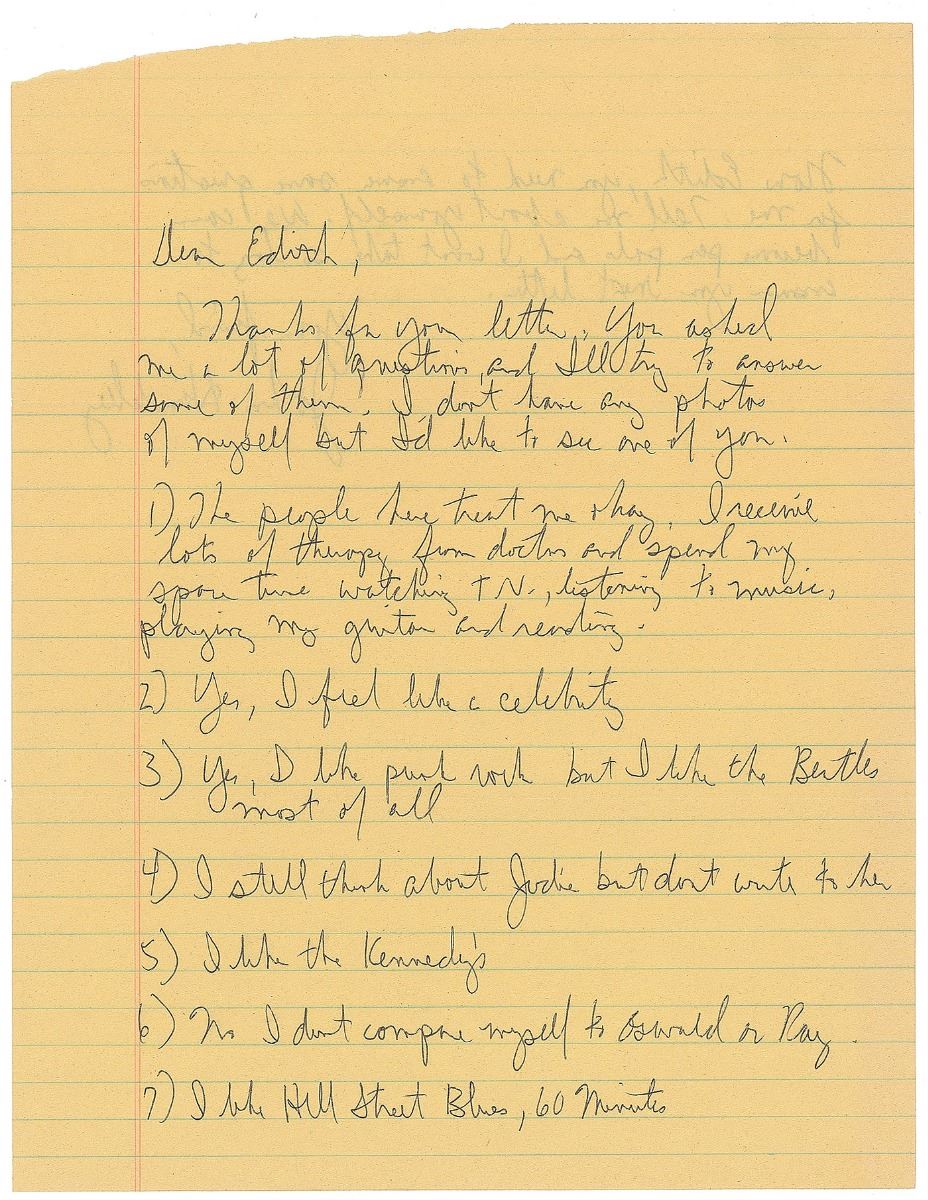 Dear Edith,
Thanks for your letter. You asked
me a lot of questions and I'll try to answer
some of them. I don't have any photos
of myself but I'd like to see one of you.
1) The people here treat me okay. I receive
lots of therapy from doctors and spend my
spare time watching T.V., listening to music,
playing my guitar and reading.
2) Yes, I feel like a celebrity
3) Yes, I like punk rock but I like the Beatles
most of all
4) I still think about Jodie but dont write to her
5) I like the Kennedy's
6) No I dont compare myself to Oswald or Ray.
7) I like Hill Street Blues, 60 Minutes